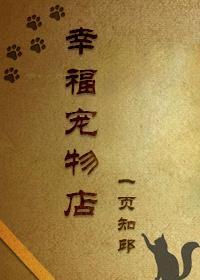 幸福宠物店
一页知邱